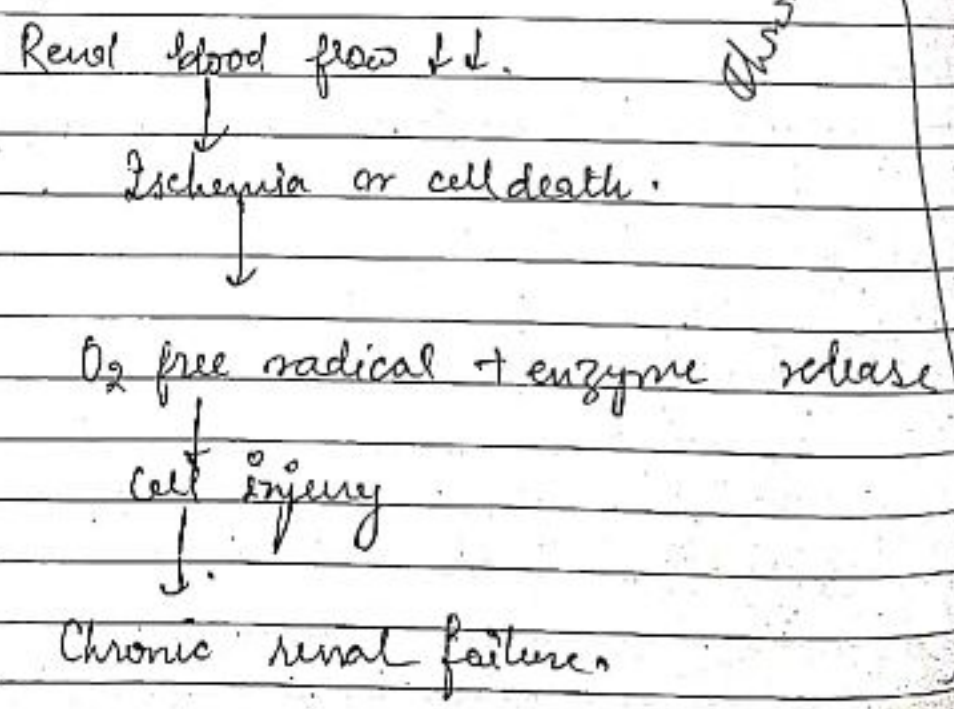 Renal blood flow ↓↓.
↓
Ischemia or cell death.
↓
O2 free radical + enzyme release
↓
Cell injury
↓
Chronic renal failure.